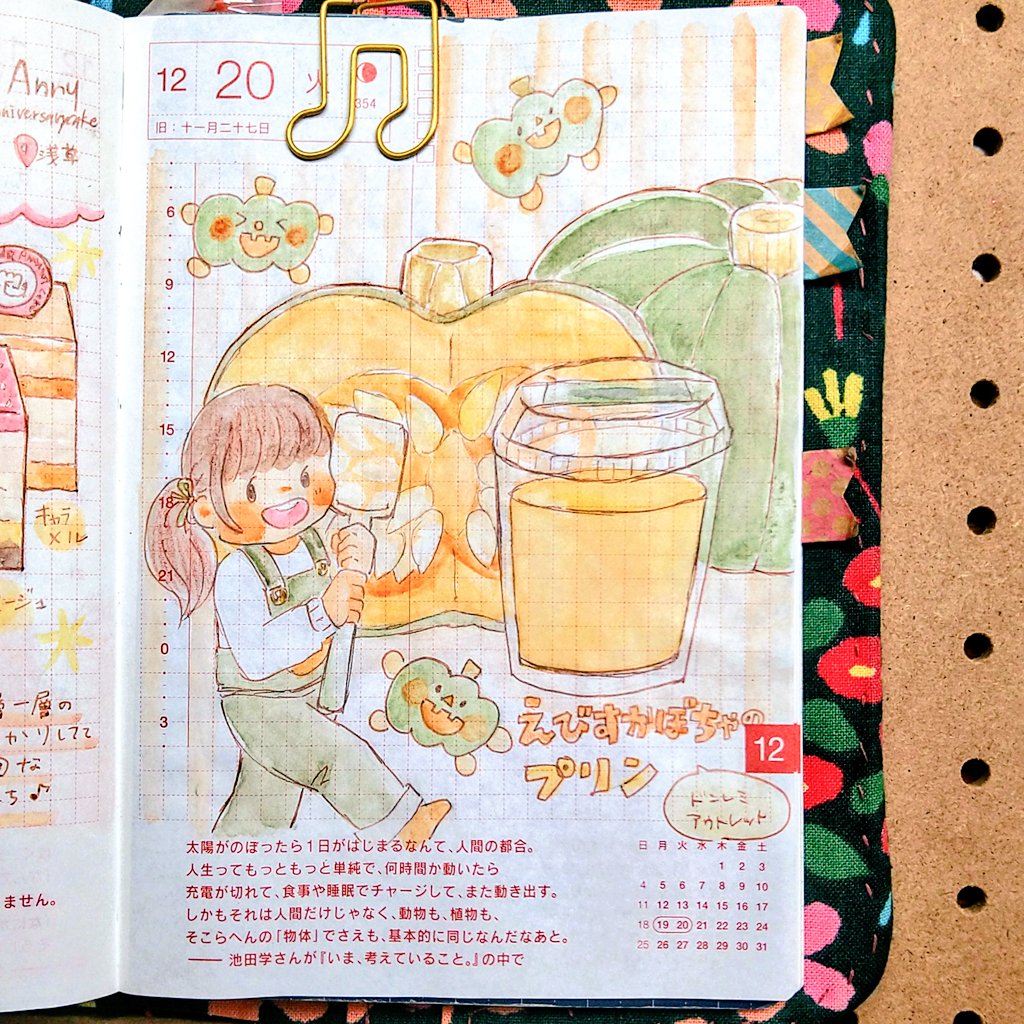 Anny
浅草
キャラ
メル
層一層の
かりしてて
な
ち♪
ません。
12 20 火
354
旧：十一月二十七日
6
9
12
15
18
21
0
3
えびすかぼちゃの
プリン
12
ドンレミ
アウトレット
太陽がのぼったら1日がはじまるなんて、人間の都合。
人生ってもっともっと単純で、何時間か動いたら
充電が切れて、食事や睡眠でチャージして、また動き出す。
しかもそれは人間だけじゃなく、動物も、植物も、
そこらへんの「物体」でさえも、基本的に同じなんだなあと。
—— 池田学さんが『いま、考えていること。』の中で
日 月 火 水 木 金 土
1 2 3
4 5 6 7 8 9 10
11 12 13 14 15 16 17
18 19 20 21 22 23 24
25 26 27 28 29 30 31